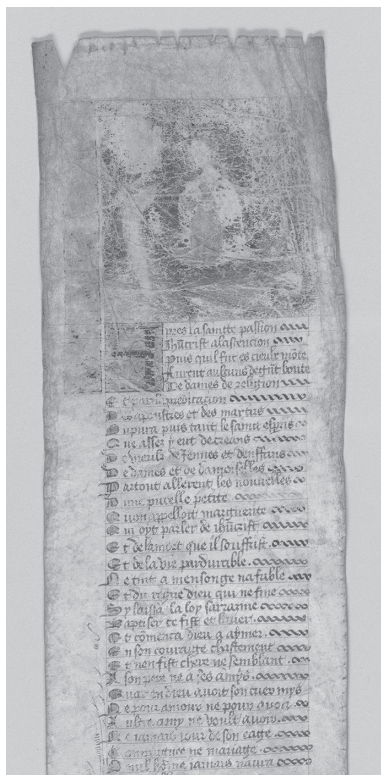 pres la saincte passion
Jhucrist a lascencion
puis quil fut es cieulx mōte
furent aulcuns de grāt bonte
De dames de religion
Et par predicacion
Dapoustres et des martirs
Inspira puis tant le saint espris
Que assez y eut de creans
De vieulx de jennes et denffans
De dames et de damoiselles
Partout allerent les nouvelles
Dune pucelle petite
Quon appelloit marguerite
Qui oyt parler de jhucrist
Et de la mort que il souffrist
Et de la vie pardurable
Ne tint a mensonge na fable
Et du regne dieu qui ne fine
Sy laissa la loy sarrazine
Baptiser se fist et lever
Et cōmenca dieu a aymer
En son couraige chastement
Et nen fist chere ne semblant
A son pere ne a ses amys
Car en dieu avoit son cueur mys
Ne pour amour ne pour avoir
Aultre amy ne voult avoir
Ne jamais jour de son eage
ne mariage
hōme jamais naura